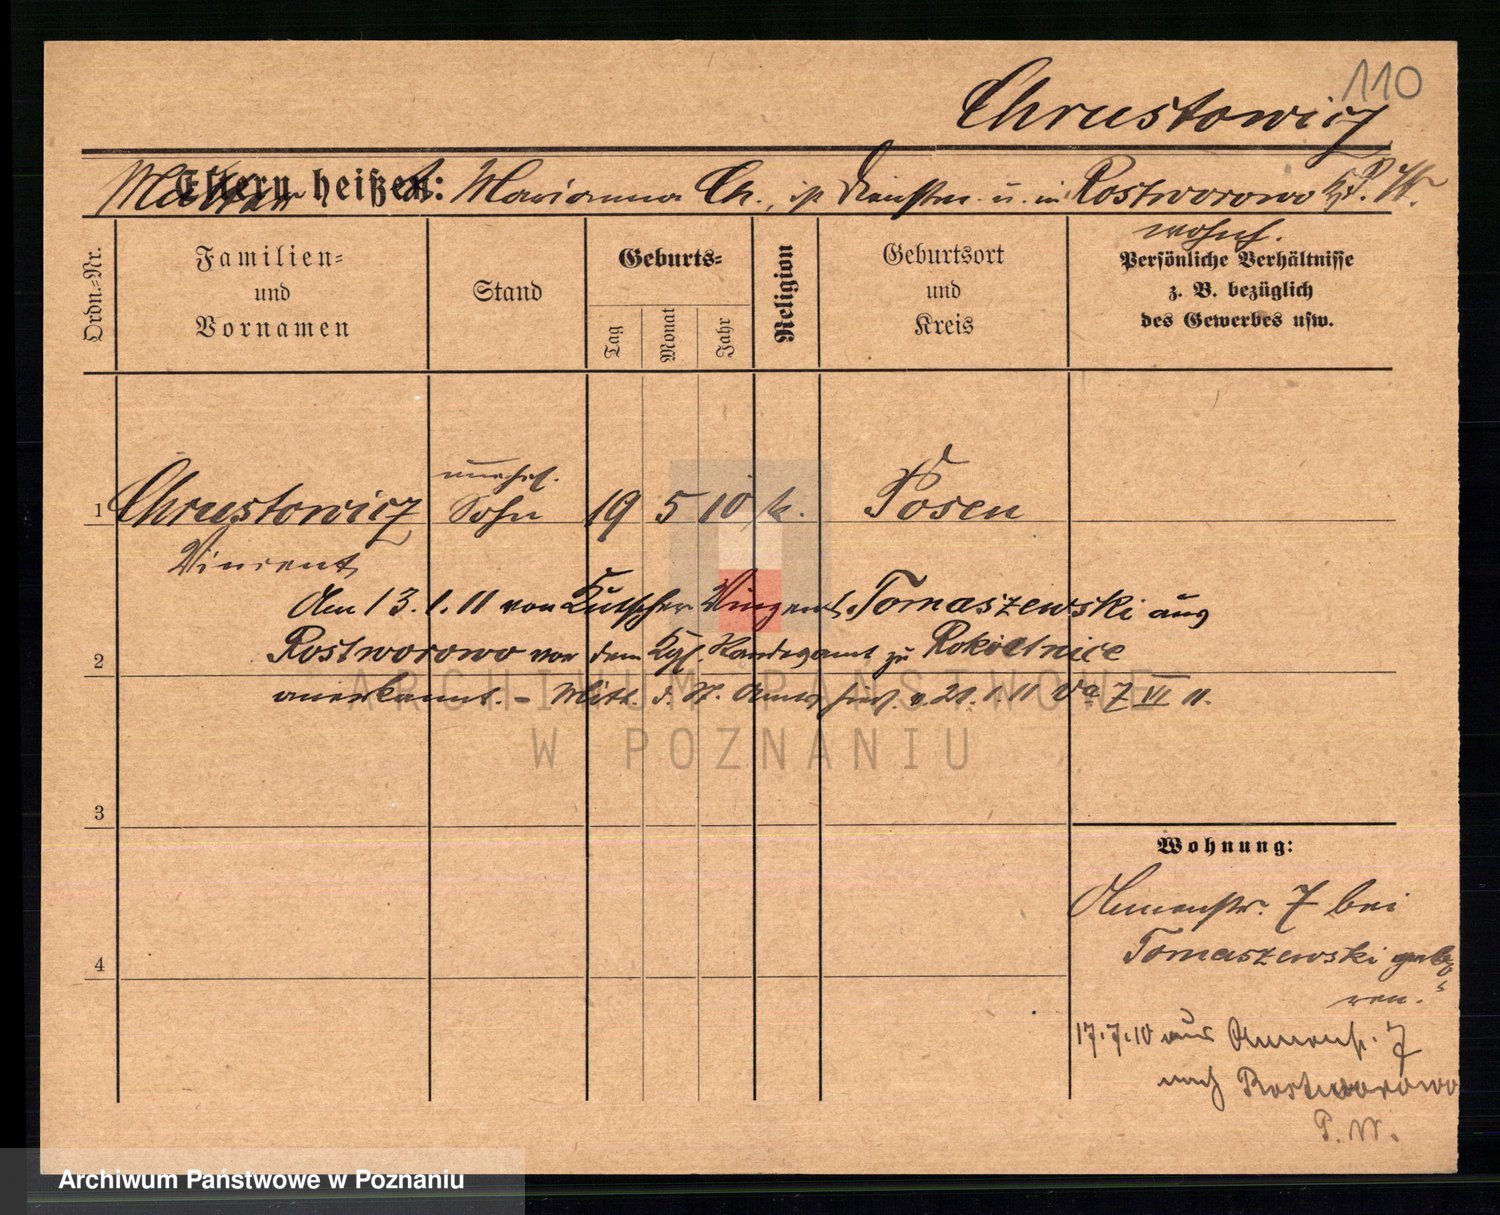 110
Chrustowicz
Mutter
Eltern heißen: Marianna Ch., ist Dienstm. u. in Rostworowo Kr. P. W.
wohnh.
Ordn.-Nr.
Familien-
und
Vornamen
Stand
Geburts-
Tag
Monat
Jahr
Religion
Geburtsort
und
Kreis
Persönliche Verhältnisse
z. B. bezüglich
des Gewerbes usw.
1 Chrustowicz unehel. Sohn 19 5 10 k. Posen
Vincent
Am 13.1.11 von Kutscher Vinzent Tomaszewski aus
2 Rostworowo vor dem Kgl. Standesamt zu Rokietnice
anerkannt. - Mitt. d. St. Amts v. 21.1.11 7 VI 11.
3
4
Wohnung:
7 bei
Tomaszewski gebo-
ren.
17.7.10 aus 7
nach Rostworowo
P. W.
ARCHIWUM PAŃSTWOWE
W POZNANIU
Archiwum Państwowe w Poznaniu